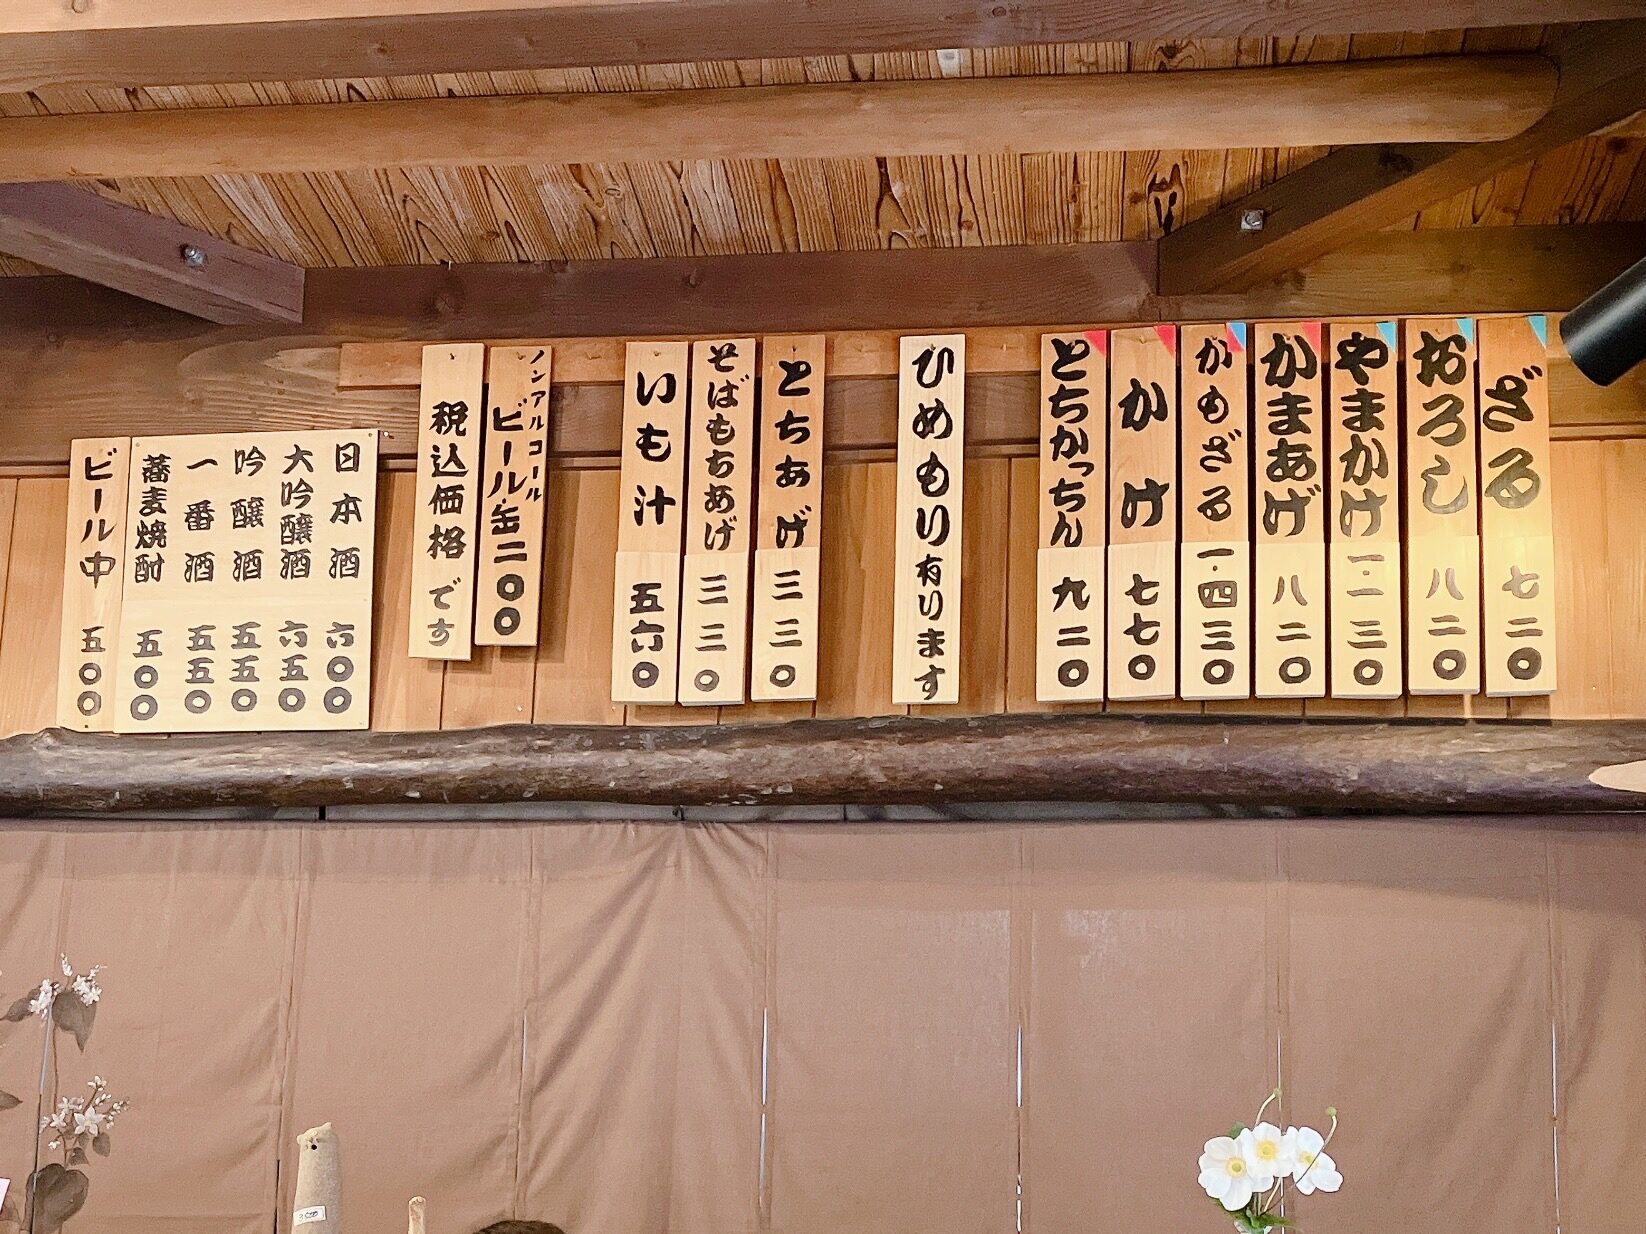 ざる 七二〇
おろし 八二〇
やまかけ 一・一三〇
かまあげ 八二〇
かもざる 一・四三〇
かけ 七七〇
とちかっちん 九二〇
ひめもり有ります
とちあげ 三三〇
そばもちあげ 三三〇
いも汁 五六〇
ノンアルコール
ビール缶二〇〇
税込価格です
日本酒 六〇〇
大吟醸酒 六五〇
吟醸酒 五五〇
一番酒 五五〇
蕎麦焼酎 五〇〇
ビール中 五〇〇